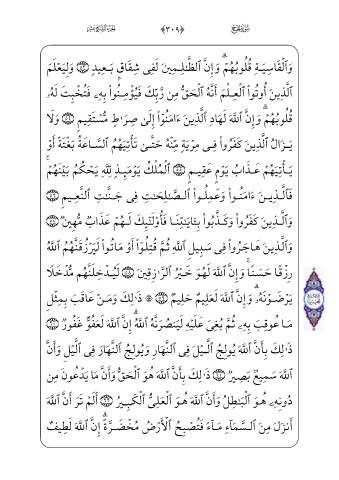 سُورَةُ الحَجِّ ﴿٣٠٩﴾ الجُزْءُ السَّابِعَ عَشَرَ
وَٱلْقَاسِيَةِ قُلُوبُهُمْ ۗ وَإِنَّ ٱلظَّـٰلِمِينَ لَفِى شِقَاقٍۭ بَعِيدٍ وَلِيَعْلَمَ
ٱلَّذِينَ أُوتُوا۟ ٱلْعِلْمَ أَنَّهُ ٱلْحَقُّ مِن رَّبِّكَ فَيُؤْمِنُوا۟ بِهِۦ فَتُخْبِتَ لَهُۥ
قُلُوبُهُمْ ۗ وَإِنَّ ٱللَّهَ لَهَادِ ٱلَّذِينَ ءَامَنُوٓا۟ إِلَىٰ صِرَٰطٍ مُّسْتَقِيمٍ وَلَا
يَزَالُ ٱلَّذِينَ كَفَرُوا۟ فِى مِرْيَةٍ مِّنْهُ حَتَّىٰ تَأْتِيَهُمُ ٱلسَّاعَةُ بَغْتَةً أَوْ
يَأْتِيَهُمْ عَذَابُ يَوْمٍ عَقِيمٍ ٱلْمُلْكُ يَوْمَئِذٍ لِّلَّهِ يَحْكُمُ بَيْنَهُمْ ۚ
فَٱلَّذِينَ ءَامَنُوا۟ وَعَمِلُوا۟ ٱلصَّـٰلِحَـٰتِ فِى جَنَّـٰتِ ٱلنَّعِيمِ
وَٱلَّذِينَ كَفَرُوا۟ وَكَذَّبُوا۟ بِـَٔايَـٰتِنَا فَأُو۟لَـٰٓئِكَ لَهُمْ عَذَابٌ مُّهِينٌ
وَٱلَّذِينَ هَاجَرُوا۟ فِى سَبِيلِ ٱللَّهِ ثُمَّ قُتِلُوٓا۟ أَوْ مَاتُوا۟ لَيَرْزُقَنَّهُمُ ٱللَّهُ
رِزْقًا حَسَنًا ۚ وَإِنَّ ٱللَّهَ لَهُوَ خَيْرُ ٱلرَّٰزِقِينَ لَيُدْخِلَنَّهُم مُّدْخَلًا
يَرْضَوْنَهُۥ ۗ وَإِنَّ ٱللَّهَ لَعَلِيمٌ حَلِيمٌ ۞ ذَٰلِكَ وَمَنْ عَاقَبَ بِمِثْلِ
مَا عُوقِبَ بِهِۦ ثُمَّ بُغِىَ عَلَيْهِ لَيَنصُرَنَّهُ ٱللَّهُ ۗ إِنَّ ٱللَّهَ لَعَفُوٌّ غَفُورٌ
ذَٰلِكَ بِأَنَّ ٱللَّهَ يُولِجُ ٱلَّيْلَ فِى ٱلنَّهَارِ وَيُولِجُ ٱلنَّهَارَ فِى ٱلَّيْلِ وَأَنَّ
ٱللَّهَ سَمِيعٌۢ بَصِيرٌ ذَٰلِكَ بِأَنَّ ٱللَّهَ هُوَ ٱلْحَقُّ وَأَنَّ مَا يَدْعُونَ مِن
دُونِهِۦ هُوَ ٱلْبَـٰطِلُ وَأَنَّ ٱللَّهَ هُوَ ٱلْعَلِىُّ ٱلْكَبِيرُ أَلَمْ تَرَ أَنَّ ٱللَّهَ
أَنزَلَ مِنَ ٱلسَّمَآءِ مَآءً فَتُصْبِحُ ٱلْأَرْضُ مُخْضَرَّةً ۗ إِنَّ ٱللَّهَ لَطِيفٌ